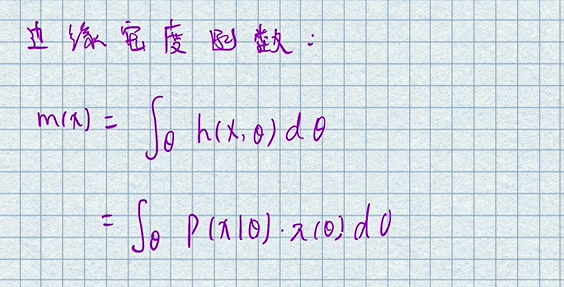 边缘密度函数：
m(x) = ∫_θ h(x, θ) dθ
= ∫_θ p(x|θ)·π(θ) dθ